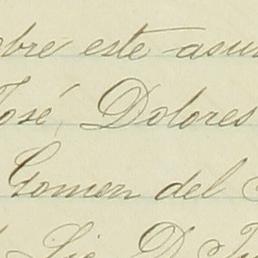 obre este asun
José, Dolores
Gomen del
Lic. D.